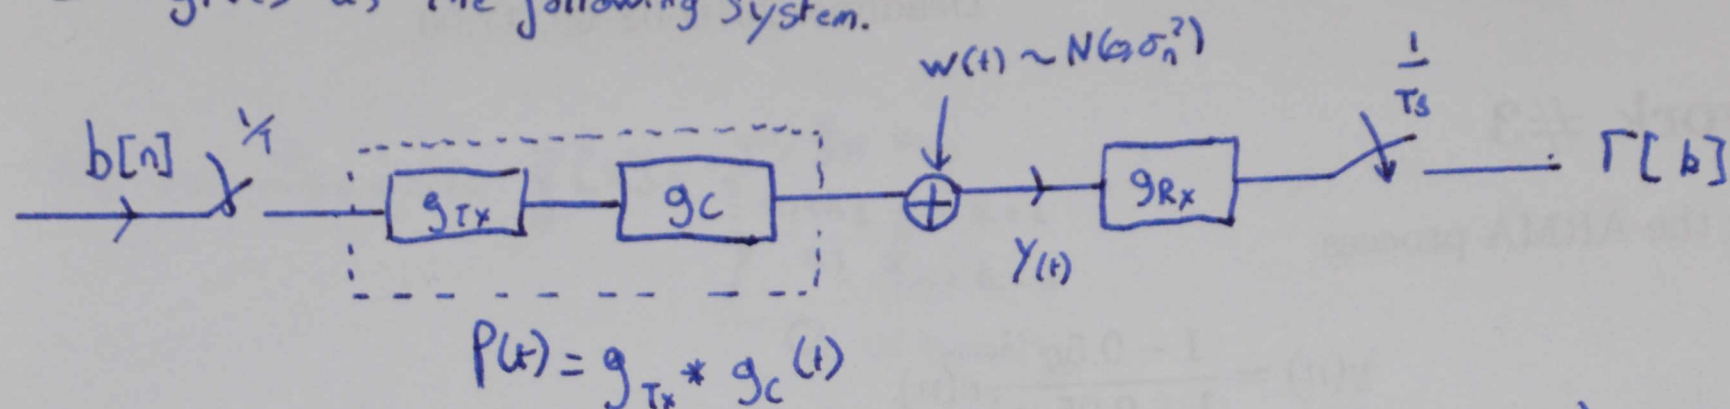 gives us the following system.
w(t) ~ N(0,σn²)
1/Ts
b[n] 1/T
gTx gc gRx r[k]
Y(t)
P(t) = gTx * gc (t)